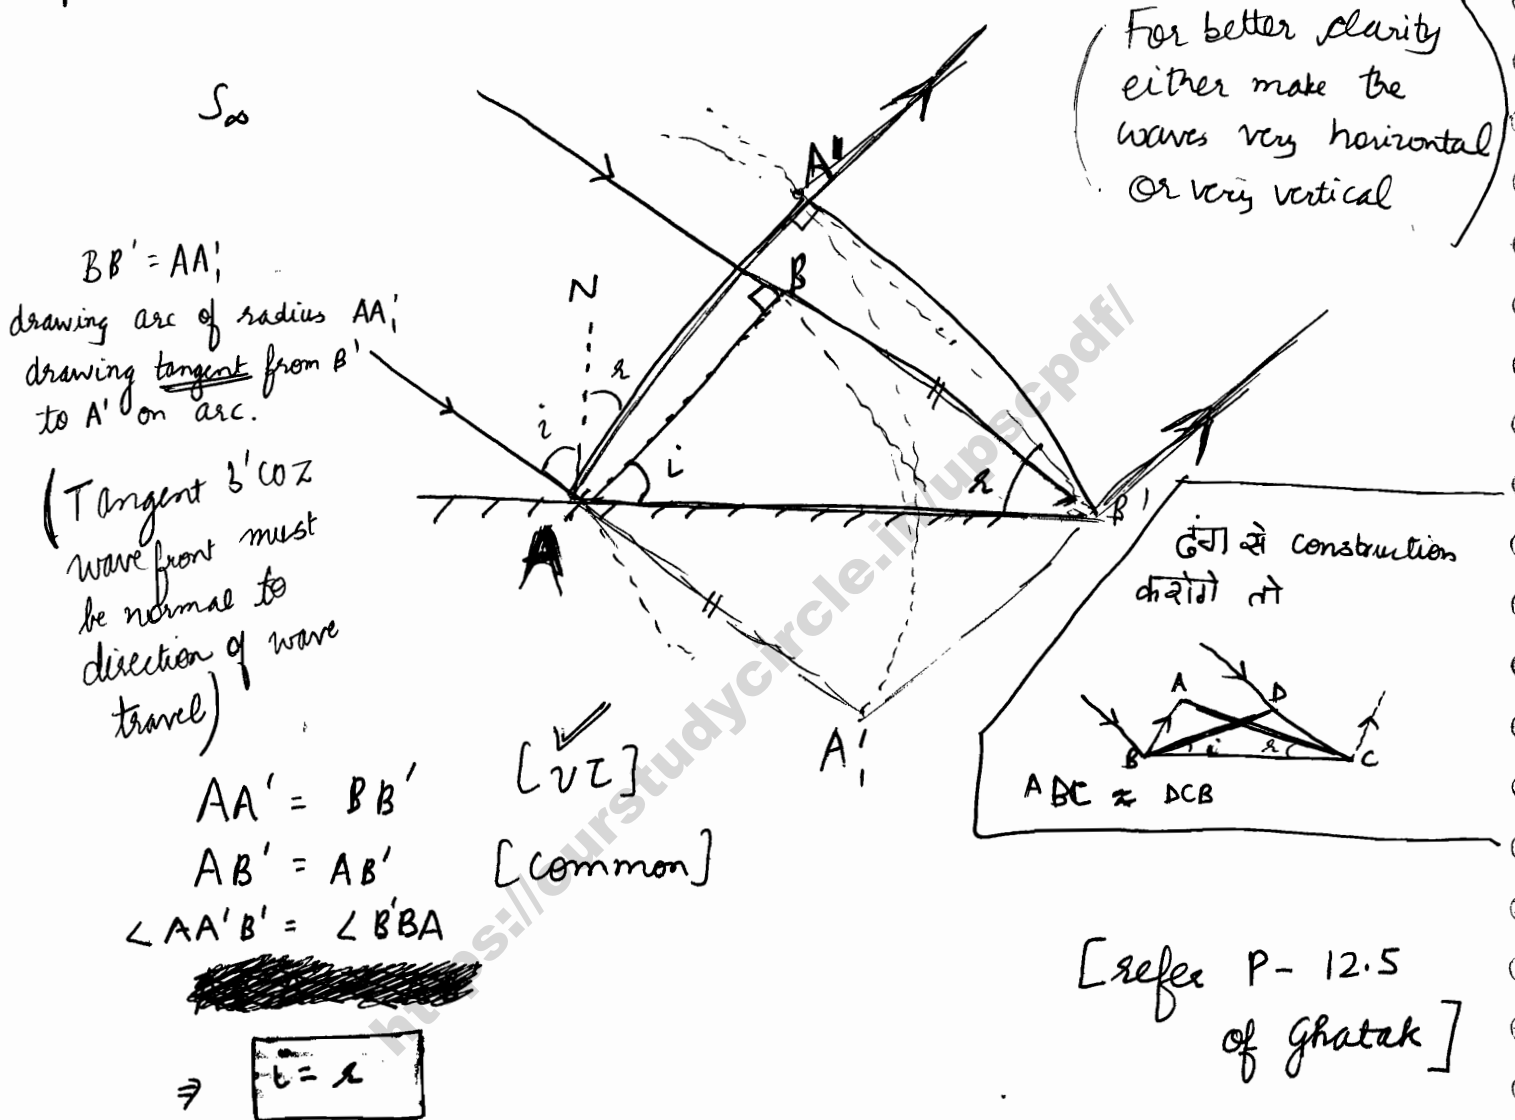 For better clarity
either make the
waves very horizontal
or very vertical
S∞
BB' = AA'₁
drawing arc of radius AA'₁
drawing tangent from B'
to A' on arc.
(Tangent B'COZ
wavefront must
be normal to
direction of wave
travel)
A"
B
N
r
i
i
r
A
B'
A'₁
AA' = BB' [vτ]
AB' = AB' [common]
∠AA'B' = ∠B'BA
⇒ i = r
ढंग से construction
करोगे तो
A
D
B
i
r
C
ABC ≈ DCB
[refer P- 12.5
of Ghatak]
https://ourstudycircle.in/upscpdf/